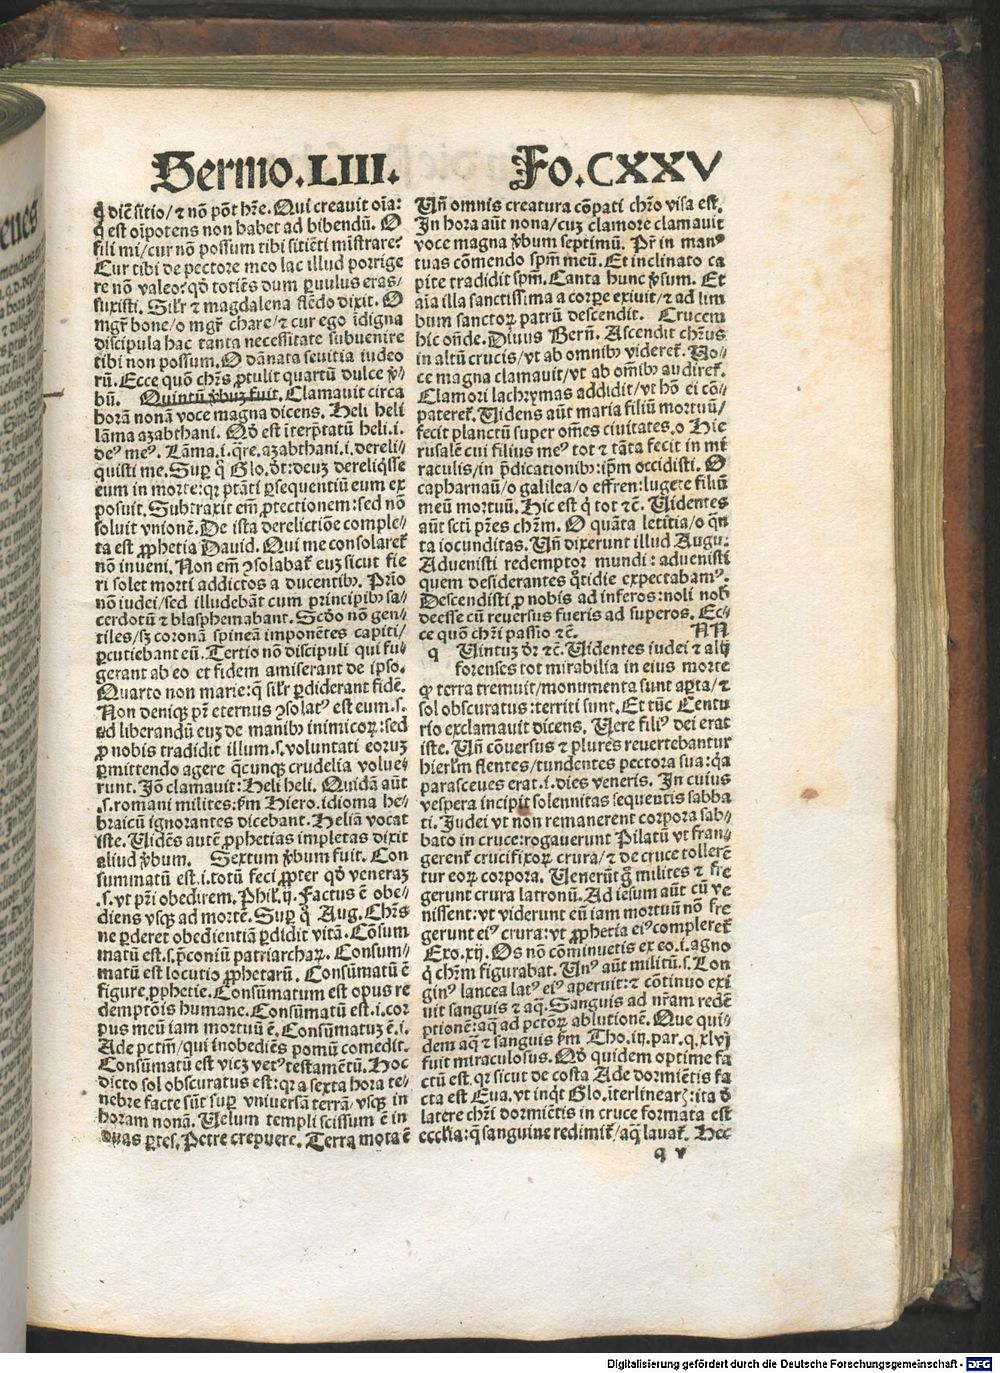 Sermo.LIII. Fo.CXXV
q̄ diē sitio/⁊ nō pōt hr̄e. Qui creavit oīa:
q̄ est oīpotens non habet ad bibendū. O
fili mi/cur nō possum tibi sitiēti mīstrare?
Cur tibi de pectore meo lac illud porrige
re nō valeo? qđ totiēs dum ꝑuulus eras/
suxisti. Sil'r ⁊ magdalena flēdo dixit. O
mgr̄ bone/o mgr̄ chare/⁊ cur ego īdigna
discipula hac tanta necessitate subuenire
tibi non possum. O dānata sevitia iudeo
rū. Ecce quō chr̄s ꝓtulit quartū dulce v̄-
bū. Quintū v̄buꝫ fuit. Clamauit circa
horā nonā voce magna dicens. Heli heli
lāma azabthani. Qđ est īterp̄tatū heli.i.
deꝰ meꝰ. Lāma.i.q̄re.azabthani.i.dereli-
quisti me. Suꝑ q̄ Glo.dr̄t:deuꝫ dereliq̄sse
eum in morte:qꝛ ptāti ꝑsequentiū eum ex
posuit. Subtraxit em̄ ꝓtectionem:sed nō
soluit vnionē. De ista derelictiōe comple-
ta est ꝓphetia David. Qui me consolareꝉ
nō inveni. Non em̄ ꝯsolabaꝉ euꝫ sicut fie
ri solet morti addictos a ducentibꝰ. Prīo
nō iudei/sed illudebāt cum principibꝰ sa-
cerdotū ⁊ blasphemabant. Scđo nō gen-
tiles/sꝫ coronā spineā imponētes capiti/
ꝑcutiebant eū. Tertio nō discipuli qui fu-
gerant ab eo et fidem amiserant de ipso.
Quarto non marie:q̄ sil'r ꝑdiderant fidē.
Non deniqꝫ pr̄ eternus ꝯsolatꝰ est eum.s.
ad liberandū euꝫ de manibꝰ inimicoꝝ:sed
ꝓ nobis tradidit illum.s.voluntati eoruꝫ
ꝑmittendo agere q̄cunqꝫ crudelia volue-
runt. Jō clamauit:Heli heli. Quidā aūt
.s.romani milites:ꝓm Hiero.idioma he-
braicū ignorantes dicebant. Heliā vocat
iste. Uidēs autē ꝓphetias impletas dixit
aliud v̄bum. Sextum v̄bum fuit. Con
summatū est.i.totū feci ꝓpter qđ veneraꝫ
.s.vt pr̄i obedirem. Phil.ij. Factus ē obe-
diens vsqꝫ ad mortē. Suꝑ q̄ Aug. Chr̄s
ne ꝑderet obedientiā ꝑdidit vitā. Cōsum
matū est.s.p̄coniū patriarchaꝝ. Consum-
matū est locutio ꝓphetarū. Consūmatū ē
figure ꝓphetie. Consūmatum est opus re
demptōis humane. Consūmatū est.i.cor
pus meū iam mortuū ē. Consūmatuꝫ ē.i.
Ade pctm̄/qui inobediēs pomū comedit.
Consūmatū est vicꝫ vetꝰ testamētū. Hoc
dicto sol obscuratus est:qꝛ a sexta hora te-
nebre facte sūt suꝑ vniuersā terrā/vsqꝫ in
horam nonā. Uelum templi scissum ē in
duas ꝑtes. Petre crepuere. Terra mota ē
Uñ omnis creatura cōpati chr̄o visa est.
In hora aūt nona/cuꝫ clamore clamauit
voce magna v̄bum septimū. Pr̄ in manꝰ
tuas cōmendo spm̄ meū. Et inclinato ca
pite tradidit spm̄. Canta hunc v̄sum. Et
aīa illa sanctissima a corpore exiuit/⁊ ad lim
bum sanctoꝝ patrū descendit. Crucem
hic oñde. Diuus Bern̄. Ascendit chr̄us
in altū crucis/vt ab omnibꝰ videreꝉ. Uo-
ce magna clamauit/vt ab oīibꝰ audireꝉ.
Clamori lachrymas addidit/vt hō ei cō-
patereꝉ. Uidens aūt maria filiū mortuū/
fecit planctū super oēs ciuitates.o Hie
rusalē cui filius meꝰ tot ⁊ tāta fecit in mi
raculis/in p̄dicationibꝰ:ip̄m occidisti. O
capharnaū/o galilea/o effren:lugete filiū
meū mortuū. Hic est q̄ tot ⁊c̄. Uidentes
aūt scti pr̄es chr̄m. O quāta letitia/o q̄n
ta iocunditas. Uñ dixerunt illud Augu.
Aduenisti redemptor mundi: aduenisti
quem desiderantes q̄tidie expectabamꝰ.
Descendisti ꝓ nobis ad inferos:noli nob̄
deesse cū reuersus fueris ad superos. Ec-
ce quō chr̄i passio ⁊c̄. NN
q Uintuꝫ dr̄ ⁊c̄. Uidentes iudei ⁊ alij
forenses tot mirabilia in eius morte
qꝛ terra tremuit/monumenta sunt aꝑta/⁊
sol obscuratus:territi sunt. Et tūc Centu
rio exclamauit dicens. Uere filiꝰ dei erat
iste. Uñ cōuersus ⁊ plures reuertebantur
hierl'm flentes/tundentes pectora sua:q̄a
parasceues erat.i.dies veneris. In cuius
vespera incipit solennitas sequentis sabba
ti. Judei vt non remanerent corpora sab-
bato in cruce:rogauerunt Pilatū vt fran-
gerenꝉ crucifixoꝝ crura/⁊ de cruce tollerē
tur eoꝝ corpora. Uenerūt g̊ milites ⁊ fre
gerunt crura latronū. Ad iesum aūt cū ve
nissent:vt viderunt eū iam mortuū nō fre
gerunt eiꝰ crura:vt ꝓphetia eiꝰ complereꝉ
Exo.xij. Os nō cōminuetis ex eo.i.agno
q̄ chr̄m figurabat. Unꝰ aūt militū.s.Lon
ginꝰ lancea latꝰ eiꝰ aperuit:⁊ cōtinuo exi
uit sanguis ⁊ aq̄. Sanguis ad nr̄am redē
ptionē:aq̄ ad pctōꝝ ablutionē. Que qui-
dem aq̄ ⁊ sanguis ꝓm Tho.iij.par.q.xlvj
fuit miraculosus. Qđ quidem optime fa
ctū est.qꝛ sicut de costa Ade dormiētis fa
cta est Eua.vt inq̄t Glo.īterlinearꝭ:ita đ
latere chr̄i dormiētis in cruce formata est
eccl'ia:q̄ sanguine redimiꝉ/aq̄ lauaꝉ. Hec
q v
Digitalisierung gefördert durch die Deutsche Forschungsgemeinschaft - DFG